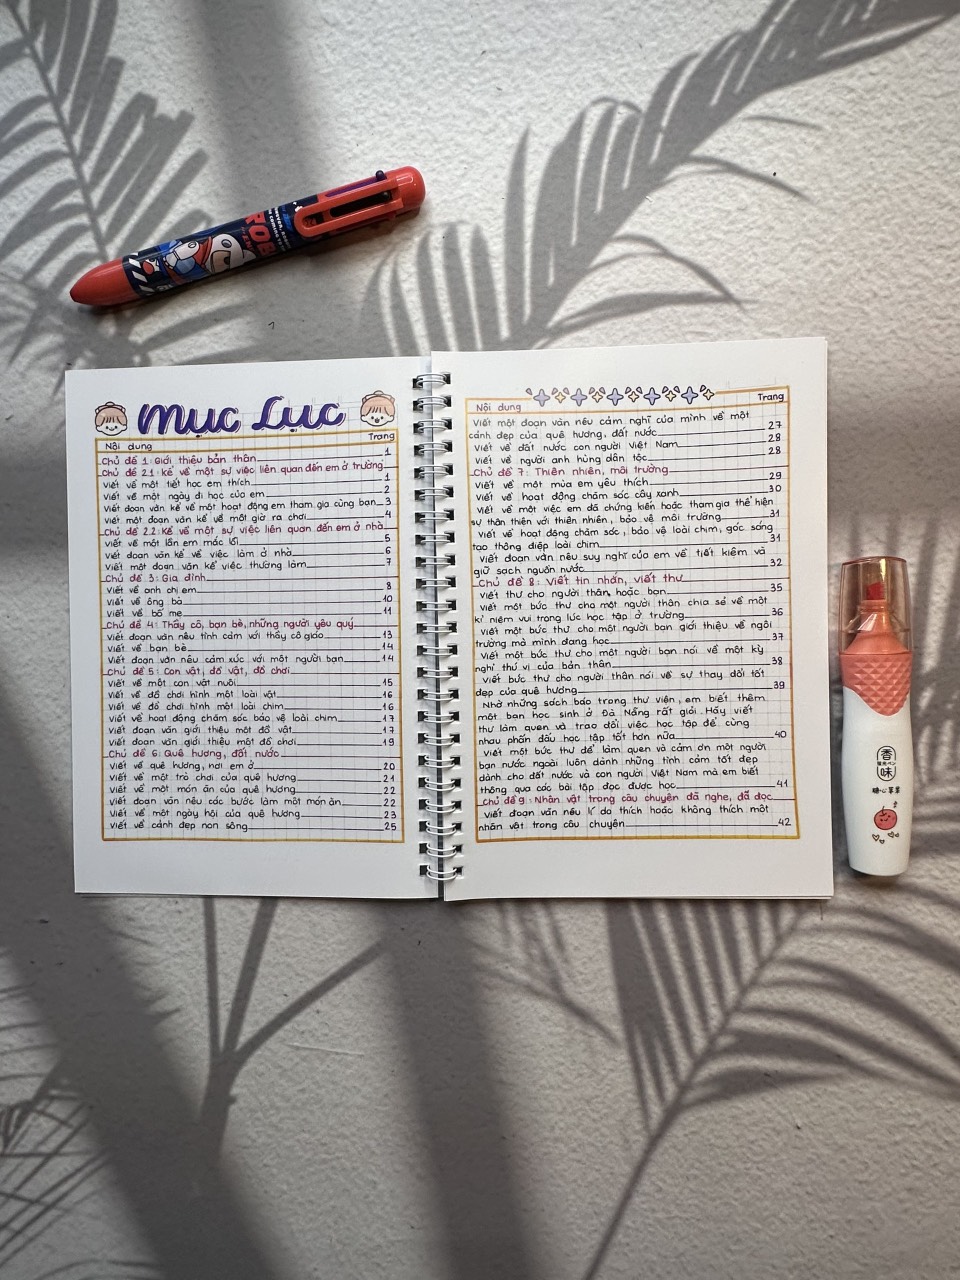 ROB
Mục Lục
Nội dung Trang
Chủ đề 1: Giới thiệu bản thân 1
Chủ đề 2.1: Kể về một sự việc liên quan đến em ở trường
Viết về một tiết học em thích 1
Viết về một ngày đi học của em 2
Viết đoạn văn kể về một hoạt động em tham gia cùng bạn 3
Viết một đoạn văn kể về một giờ ra chơi 4
Chủ đề 2.2: Kể về một sự việc liên quan đến em ở nhà
Viết về một lần em mắc lỗi 5
Viết đoạn văn kể về việc làm ở nhà 6
Viết một đoạn văn kể việc thường làm 7
Chủ đề 3: Gia đình
Viết về anh chị em 8
Viết về ông bà 10
Viết về bố mẹ 11
Chủ đề 4: Thầy cô, bạn bè, những người yêu quý
Viết đoạn văn nêu tình cảm với thầy cô giáo 13
Viết về bạn bè 14
Viết đoạn văn nêu cảm xúc với một người bạn 14
Chủ đề 5: Con vật, đồ vật, đồ chơi
Viết về một con vật nuôi 15
Viết về đồ chơi hình một loài vật 16
Viết về đồ chơi hình một loài chim 16
Viết về hoạt động chăm sóc bảo vệ loài chim 17
Viết đoạn văn giới thiệu một đồ vật 17
Viết đoạn văn giới thiệu một đồ chơi 19
Chủ đề 6: Quê hương, đất nước
Viết về quê hương, nơi em ở 20
Viết về một trò chơi của quê hương 21
Viết về một món ăn của quê hương 22
Viết đoạn văn nêu các bước làm một món ăn 22
Viết về một ngày hội của quê hương 23
Viết về cảnh đẹp non sông 25
Nội dung Trang
Viết một đoạn văn nêu cảm nghĩ của mình về một
cảnh đẹp của quê hương, đất nước 27
Viết về đất nước con người Việt Nam 28
Viết về người anh hùng dân tộc 28
Chủ đề 7: Thiên nhiên, môi trường
Viết về một mùa em yêu thích 29
Viết về hoạt động chăm sóc cây xanh 30
Viết về một việc em đã chứng kiến hoặc tham gia thể hiện
sự thân thiện với thiên nhiên, bảo vệ môi trường 31
Viết về hoạt động chăm sóc, bảo vệ loài chim, góc sáng
tạo thông điệp loài chim 31
Viết đoạn văn nêu suy nghĩ của em về tiết kiệm và
giữ sạch nguồn nước 32
Chủ đề 8: Viết tin nhắn, viết thư
Viết thư cho người thân hoặc bạn 35
Viết một bức thư cho một người thân chia sẻ về một
kỉ niệm vui trong lúc học tập ở trường 36
Viết một bức thư cho một người bạn giới thiệu về ngôi
trường mà mình đang học 37
Viết một bức thư cho một người bạn nói về một kỳ
nghỉ thú vị của bản thân 38
Viết bức thư cho người thân nói về sự thay đổi tốt
đẹp của quê hương 39
Nhờ những sách báo trong thư viện, em biết thêm
một bạn học sinh ở Đà Nẵng rất giỏi. Hãy viết
thư làm quen và trao đổi việc học tập để cùng
nhau phấn đấu học tập tốt hơn nữa 40
Viết một bức thư để làm quen và cảm ơn một người
bạn nước ngoài luôn dành những tình cảm tốt đẹp
dành cho đất nước và con người Việt Nam mà em biết
thông qua các bài tập đọc được học 41
Chủ đề 9: Nhân vật trong câu chuyện đã nghe, đã đọc
Viết đoạn văn nêu lí do thích hoặc không thích một
nhân vật trong câu chuyện 42
香
味